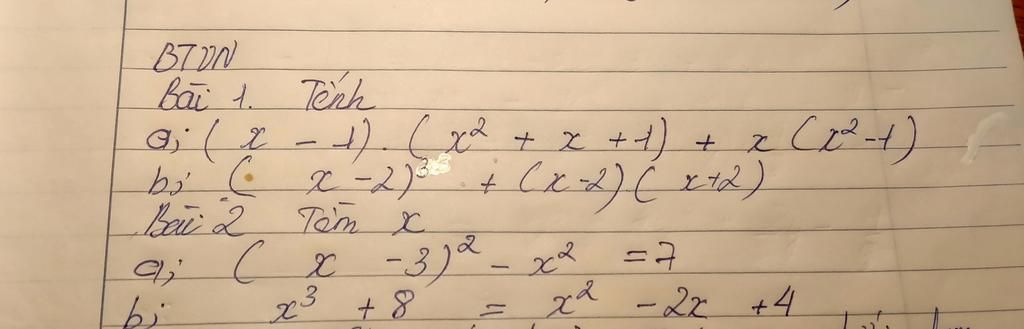 BTVN
Bài 1. Tính
a; ( x - 1) . ( x² + x + 1) + x ( x² - 1 )
b; ( x - 2)³ + (x - 2) ( x + 2 )
Bài 2 Tìm x
a; ( x - 3)² - x² = 7
b; x³ + 8 = x² - 2x + 4